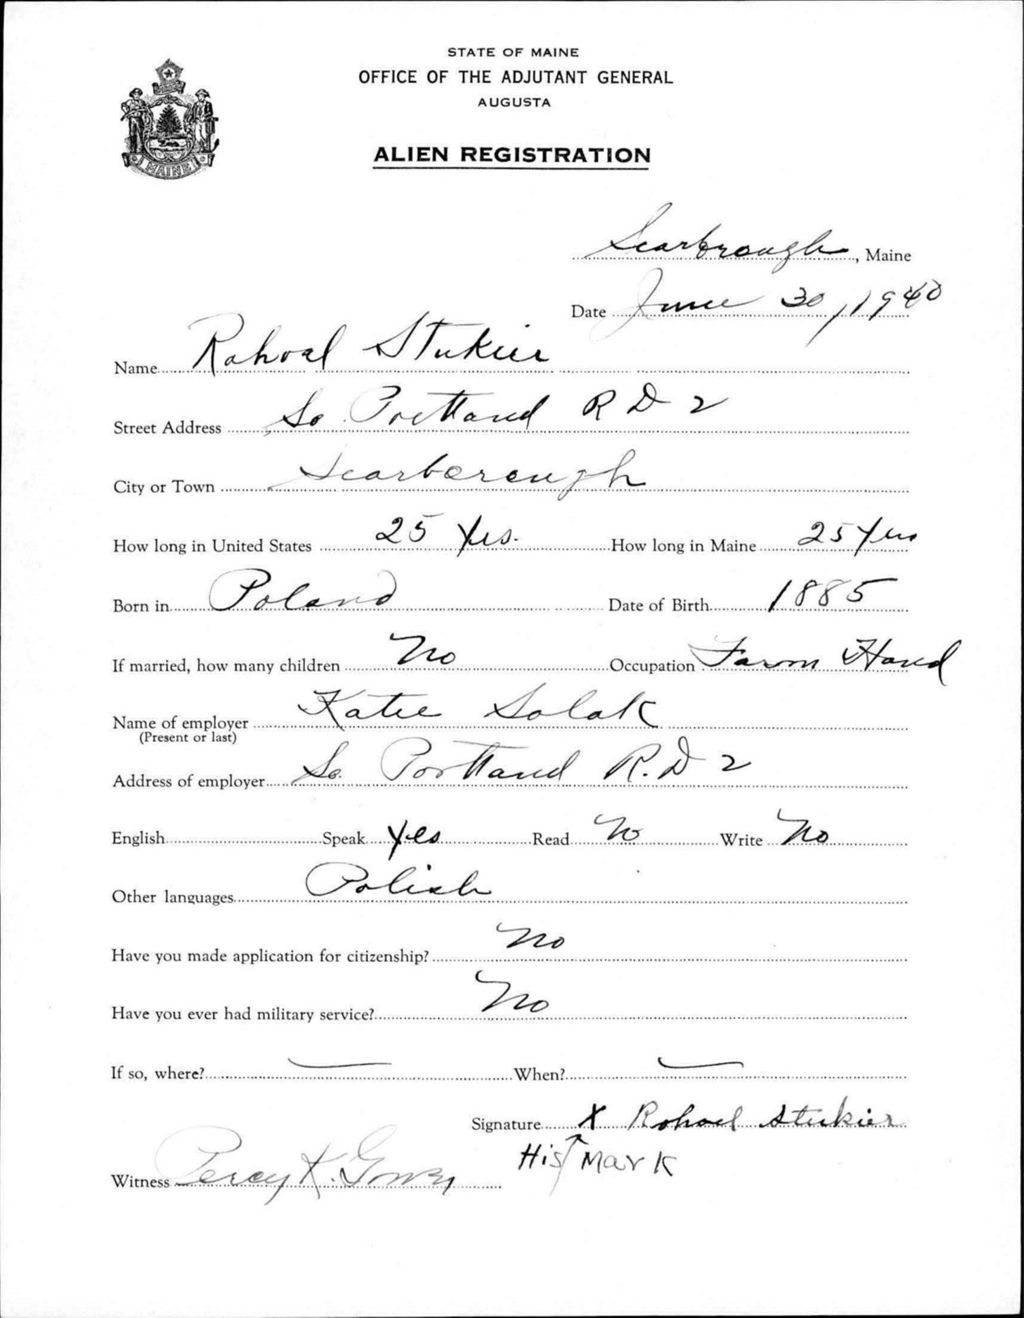 STATE OF MAINE
OFFICE OF THE ADJUTANT GENERAL
AUGUSTA
ALIEN REGISTRATION
MAINE
Scarbrough, Maine
Date June 30, 1940
Name Rohoal Stukier
Street Address So Portland R D 2
City or Town Scarborough
How long in United States 25 Yrs. How long in Maine 25 Yrs
Born in Poland Date of Birth 1885
If married, how many children No Occupation Farm Hand
Name of employer Katie Solak
(Present or last)
Address of employer So. Portland R.D 2
English Speak Yes Read No Write No
Other languages Polish
Have you made application for citizenship? No
Have you ever had military service? No
If so, where? — When? —
Signature X Rohoel Stukier
His Mark
Witness Percy K.